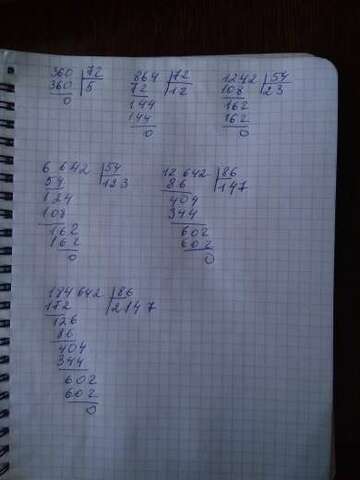 360 72
360 5
0
864 72
72 12
144
144
0
1242 54
108 23
162
162
0
6 642 54
54 123
124
108
162
162
0
12 642 86
86 147
404
344
602
602
0
184 642 86
172 2147
126
86
404
344
602
602
0